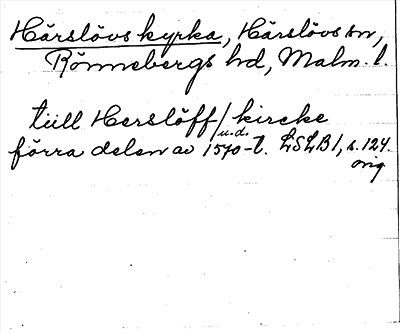 Härslövs kyrka, Härslövs sn,
Rönnebergs hd, Malm. l.
tiill Herslöff / kircke
u.d.
förra delen av 1570-t. LSLB 1, s. 124
orig